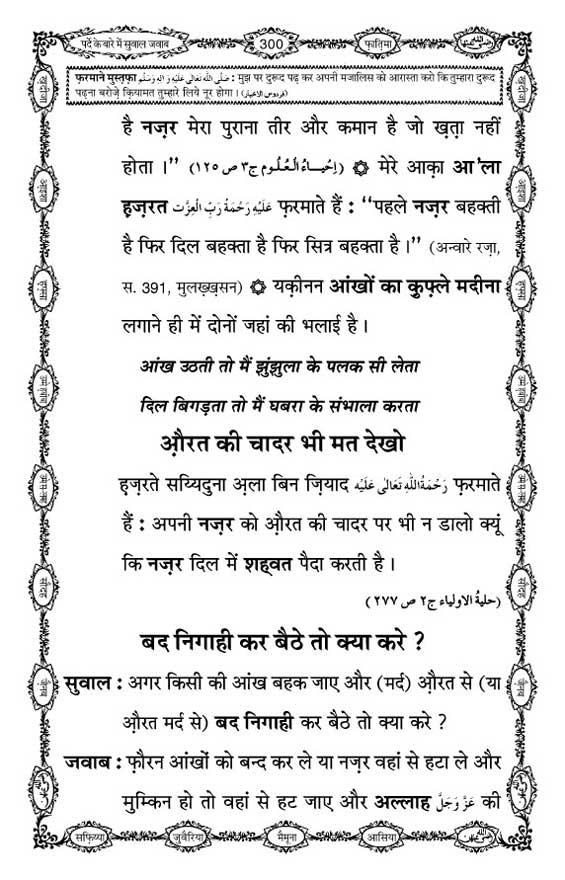 पर्दे के बारे में सुवाल जवाब 300 फ़ातिमा
फ़रमाने मुस्तफ़ा صَلَّى اللّٰهُ تَعَالٰى عَلَيْهِ وَاٰلِهٖ وَسَلَّم : मुझ पर दुरूद पढ़ कर अपनी मजालिस को आरास्ता करो कि तुम्हारा दुरूद
पढ़ना बरोज़े क़ियामत तुम्हारे लिये नूर होगा । (فردوس الاخبار)
है नज़र मेरा पुराना तीर और कमान है जो ख़ता नहीं
होता ।” (اِحْياءُ الْعُلُوم ج٣ ص ١٢٥) ۞ मेरे आक़ा आ’ला
हज़रत عَلَيْهِ رَحْمَةُ رَبِّ الْعِزَّت फ़रमाते हैं : “पहले नज़र बहकती
है फिर दिल बहकता है फिर सित्र बहकता है ।” (अन्वारे रज़ा,
स. 391, मुलख़्ख़सन) ۞ यक़ीनन आंखों का कुफ़्ले मदीना
लगाने ही में दोनों जहां की भलाई है ।
आंख उठती तो मैं झुंझुला के पलक सी लेता
दिल बिगड़ता तो मैं घबरा के संभाला करता
औ़रत की चादर भी मत देखो
ह़ज़रते सय्यिदुना अ़ला बिन ज़ियाद رَحْمَةُ اللّٰهِ تَعَالٰى عَلَيْه फ़रमाते
हैं : अपनी नज़र को औ़रत की चादर पर भी न डालो क्यूं
कि नज़र दिल में शह्वत पैदा करती है ।
(حلية الاولياء ج٢ ص ٢٧٧)
बद निगाही कर बैठे तो क्या करे ?
सुवाल : अगर किसी की आंख बहक जाए और (मर्द) औ़रत से (या
औ़रत मर्द से) बद निगाही कर बैठे तो क्या करे ?
जवाब : फ़ौरन आंखों को बन्द कर ले या नज़र वहां से हटा ले और
मुम्किन हो तो वहां से हट जाए और अल्लाह عَزَّ وَجَلَّ की
सफ़िय्या जुवैरिया मैमूना आसिया